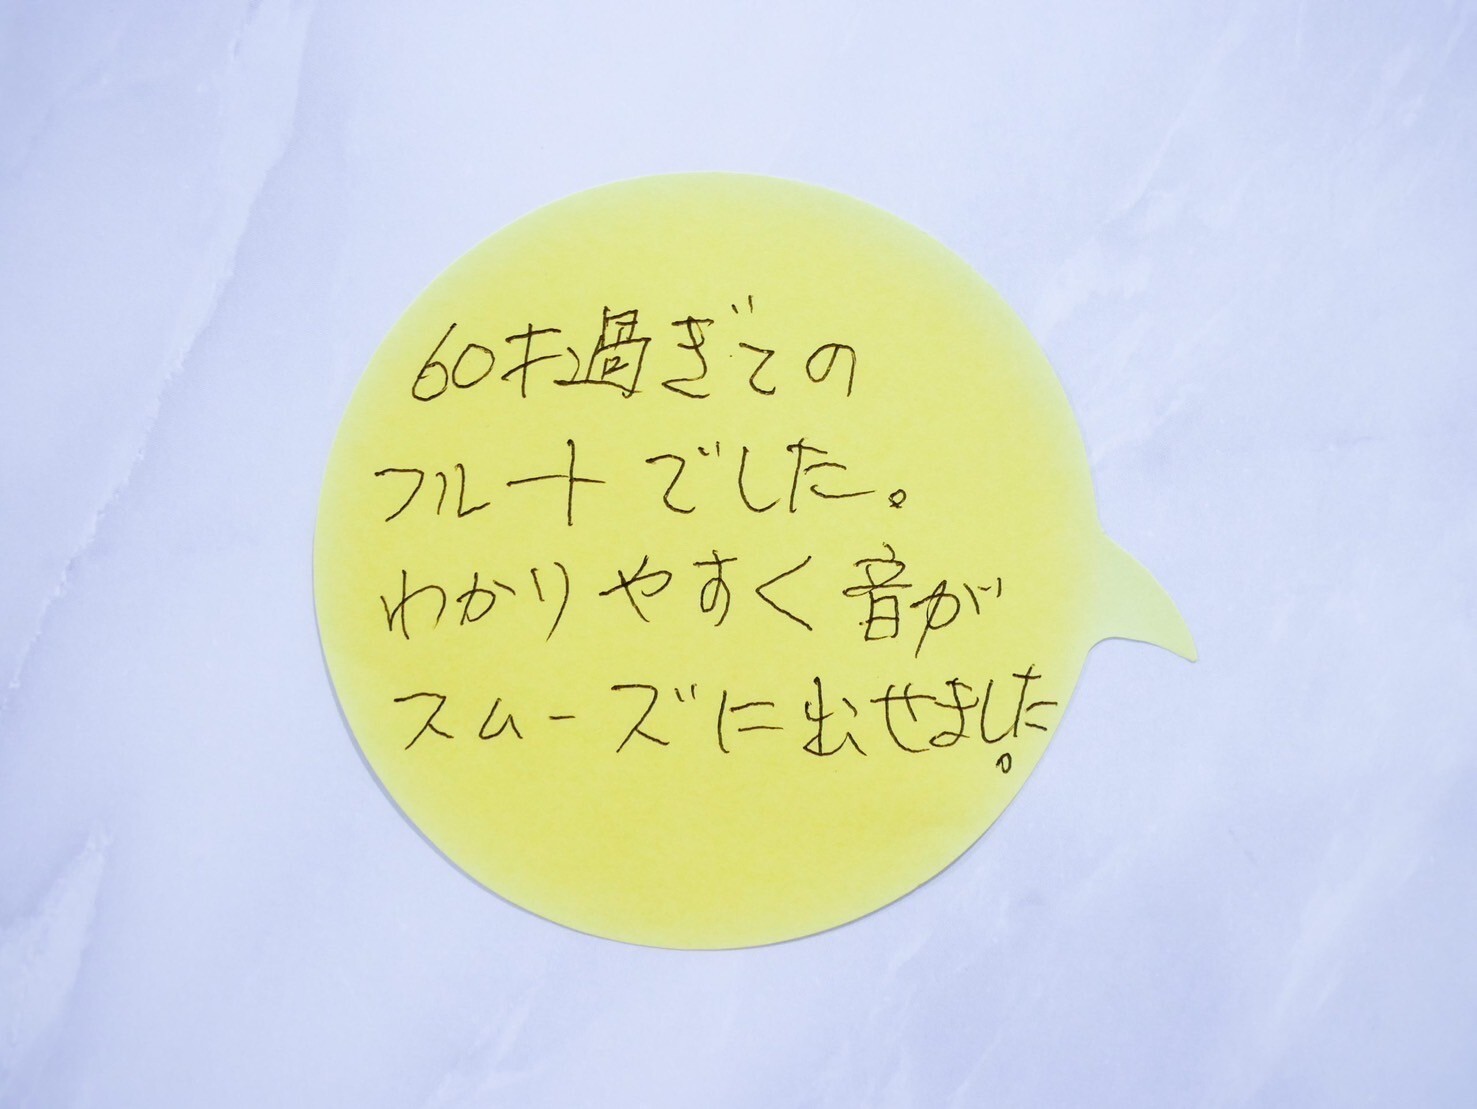 60才過ぎての
フルートでした。
わかりやすく音が
スムーズに出せました。